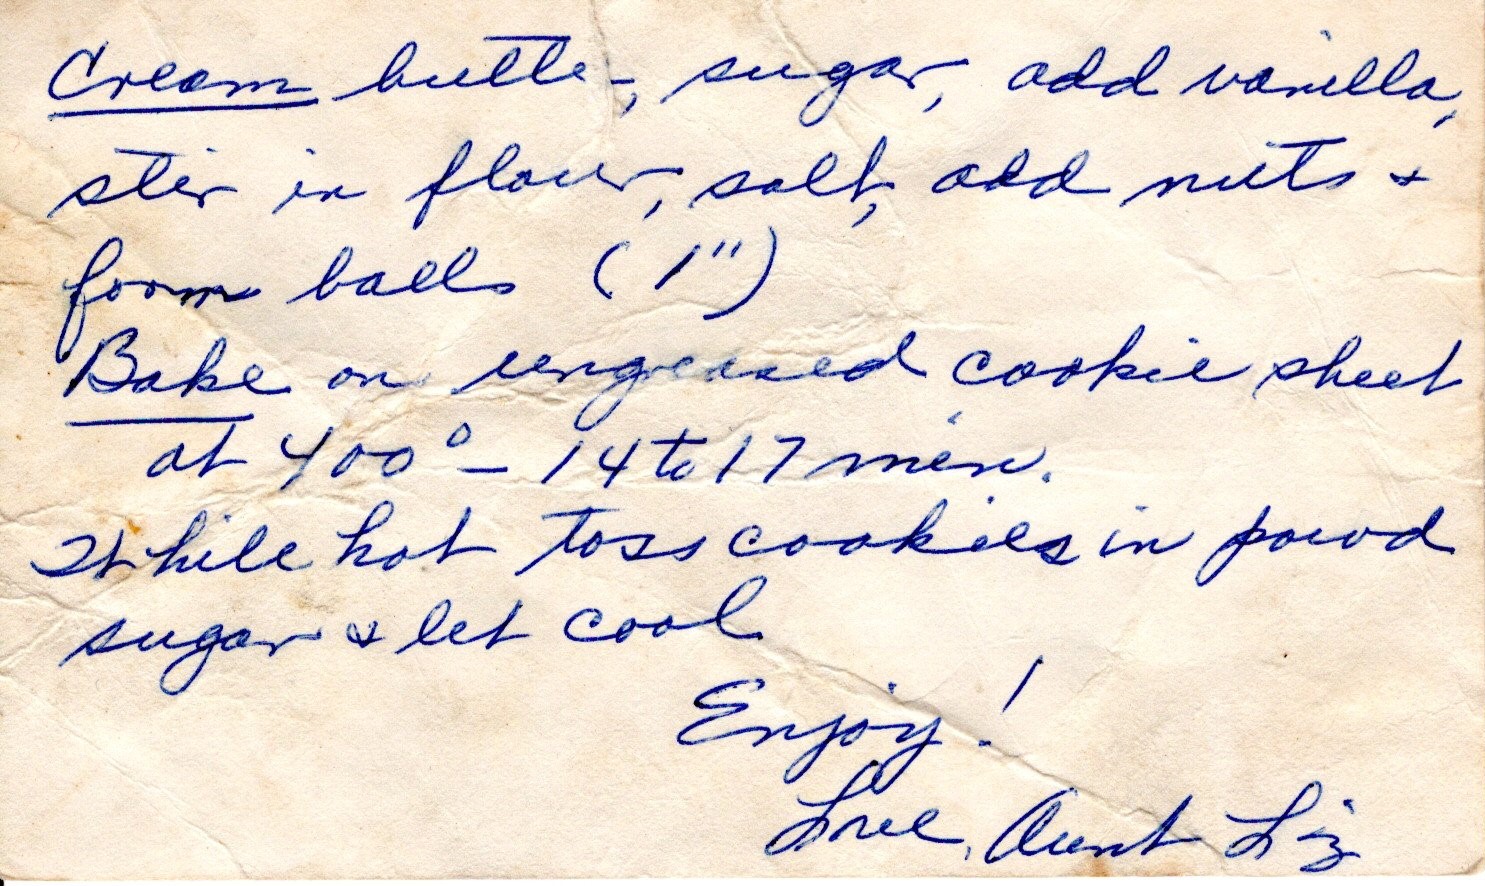 Cream butter, sugar, add vanilla,
stir in flour, salt, add nuts &
form balls (1")
Bake on ungreased cookie sheet
at 400° - 14 to 17 min.
While hot toss cookies in powd
sugar & let cool
Enjoy!
Love, Aunt Liz